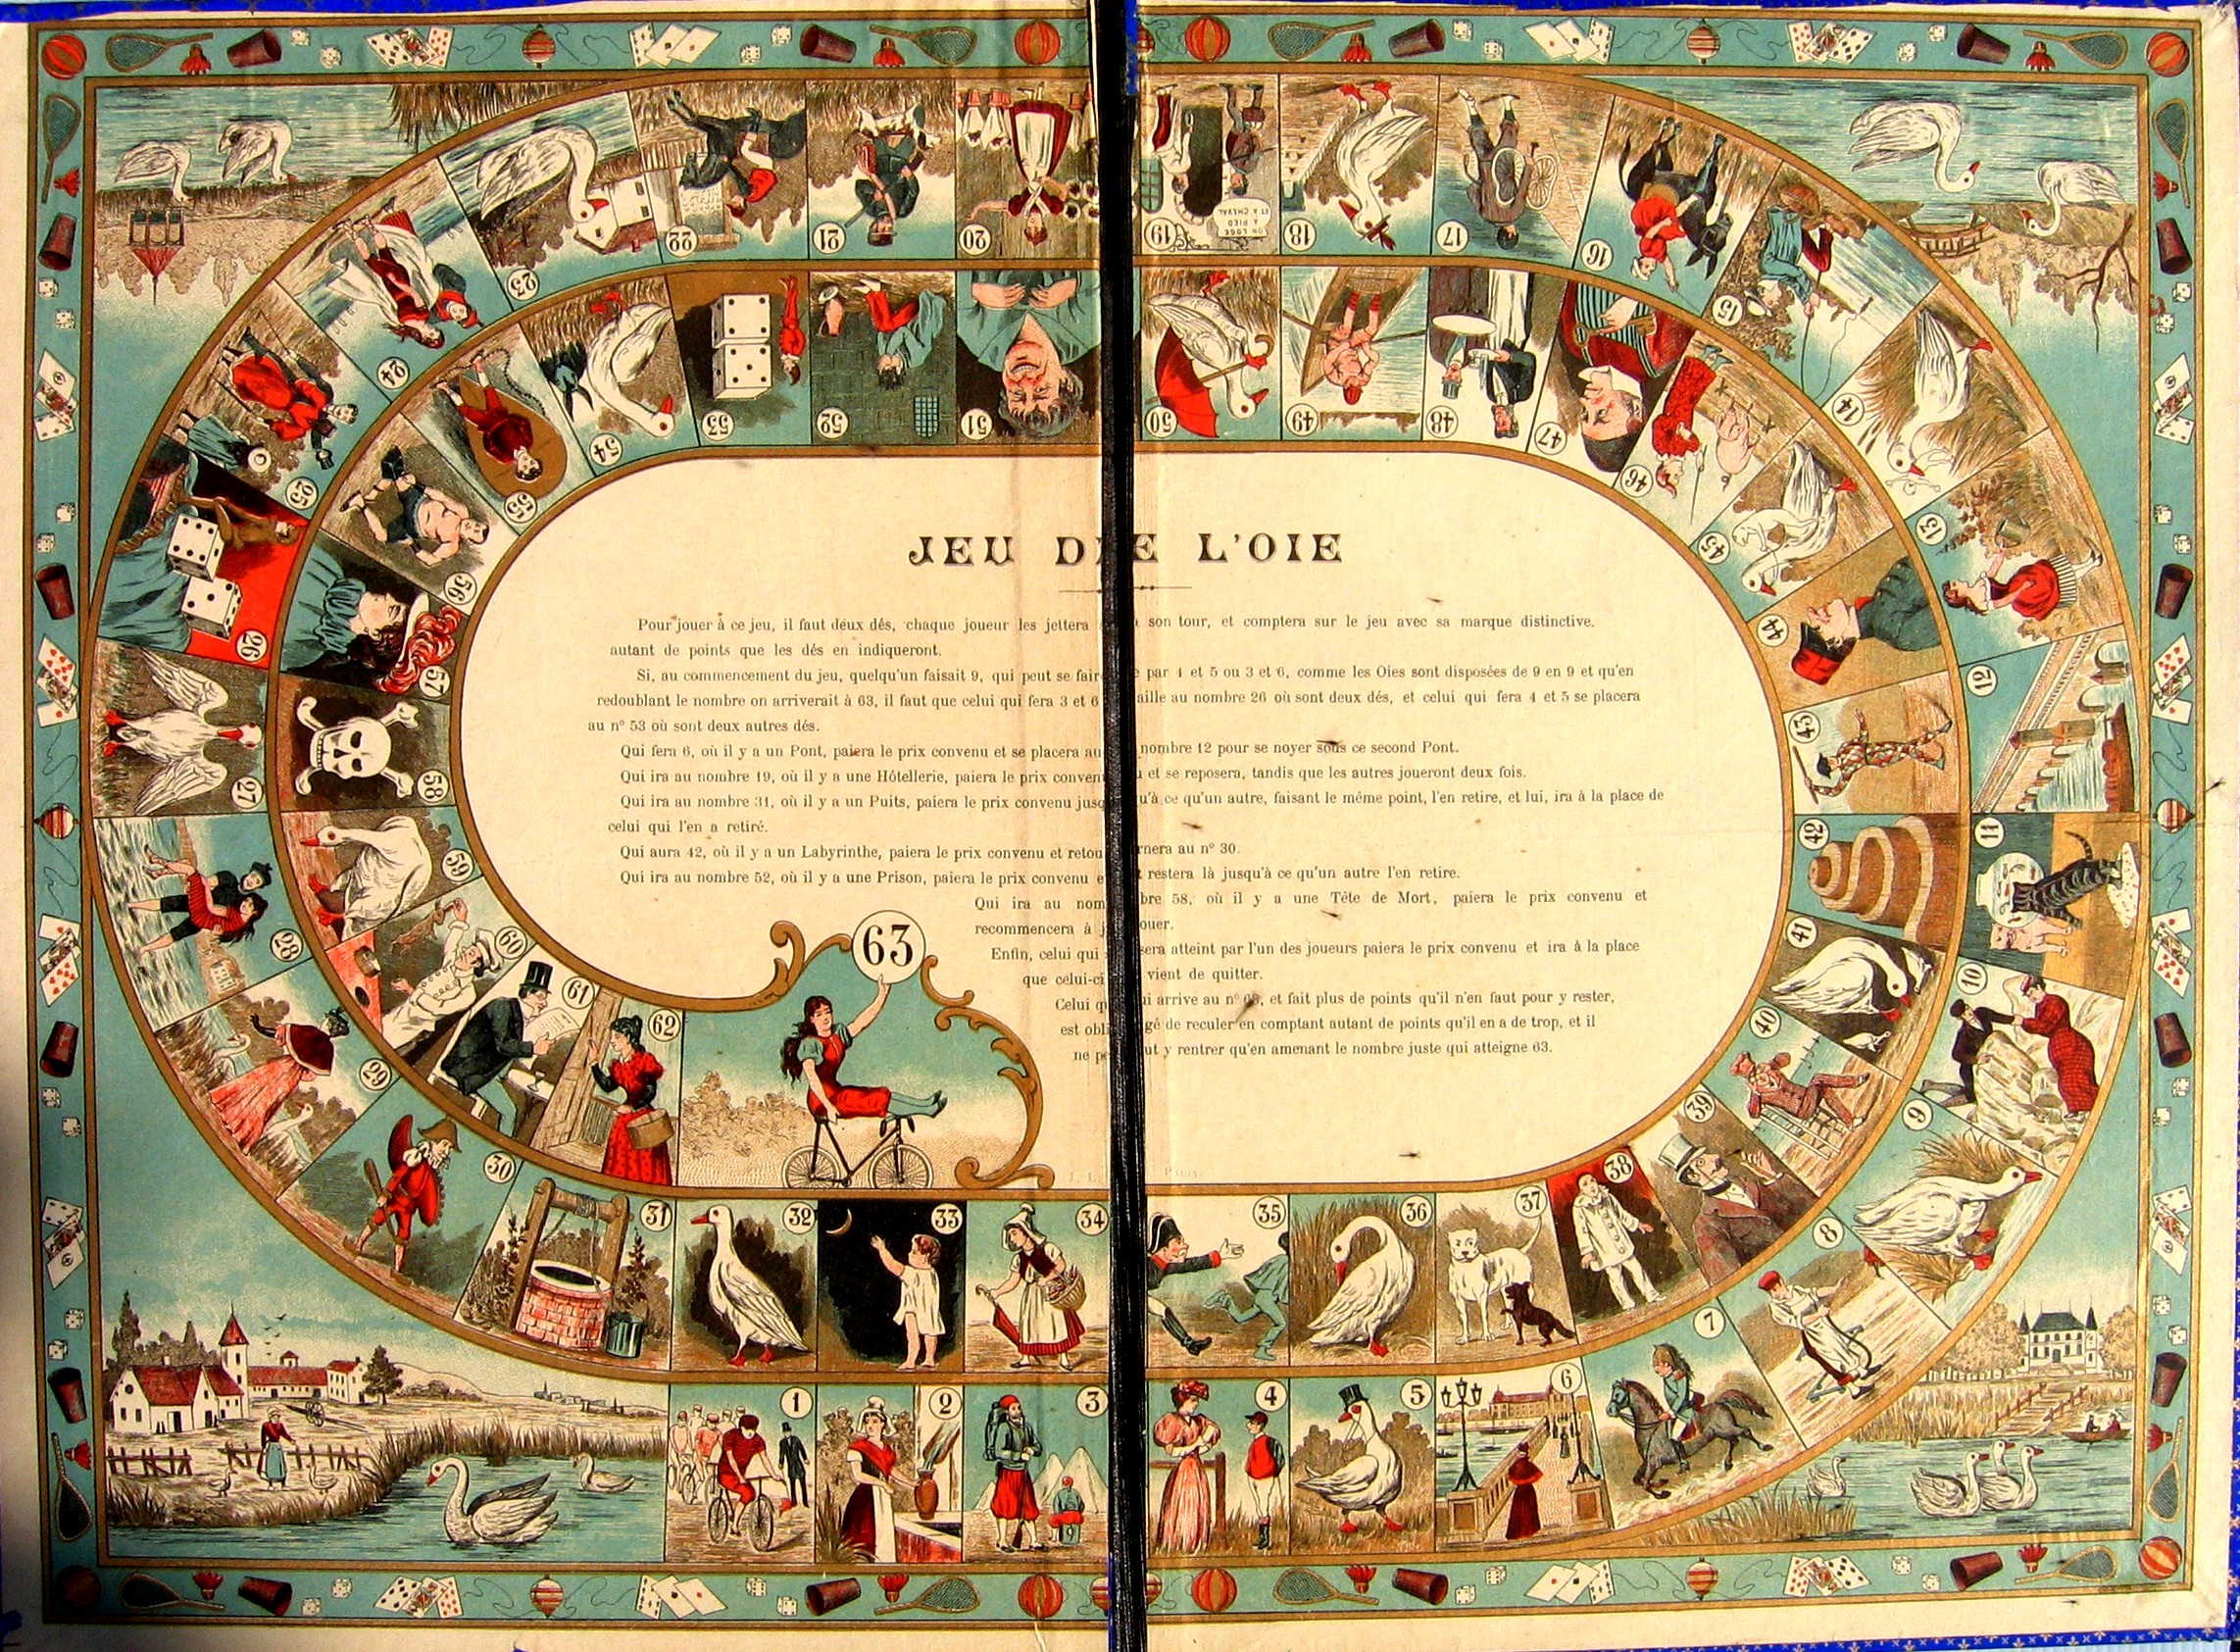 JEU DE L'OIE
Pour jouer à ce jeu, il faut deux dés, chaque joueur les jettera à son tour, et comptera sur le jeu avec sa marque distinctive,
autant de points que les dés en indiqueront.
Si, au commencement du jeu, quelqu'un faisait 9, qui peut se faire par 4 et 5 ou 3 et 6, comme les Oies sont disposées de 9 en 9 et qu'en
redoublant le nombre on arriverait à 63, il faut que celui qui fera 3 et 6 aille au nombre 26 où sont deux dés, et celui qui fera 4 et 5 se placera
au n° 53 où sont deux autres dés.
Qui fera 6, où il y a un Pont, paiera le prix convenu et se placera au nombre 12 pour se noyer sous ce second Pont.
Qui ira au nombre 19, où il y a une Hôtellerie, paiera le prix convenu et se reposera, tandis que les autres joueront deux fois.
Qui ira au nombre 31, où il y a un Puits, paiera le prix convenu jusqu'à ce qu'un autre, faisant le même point, l'en retire, et lui, ira à la place de
celui qui l'en a retiré.
Qui aura 42, où il y a un Labyrinthe, paiera le prix convenu et retournera au n° 30.
Qui ira au nombre 52, où il y a une Prison, paiera le prix convenu et restera là jusqu'à ce qu'un autre l'en retire.
Qui ira au nombre 58, où il y a une Tête de Mort, paiera le prix convenu et
recommencera à jouer.
Enfin, celui qui sera atteint par l'un des joueurs paiera le prix convenu et ira à la place
que celui-ci vient de quitter.
Celui qui arrive au n° 63, et fait plus de points qu'il n'en faut pour y rester,
est obligé de reculer en comptant autant de points qu'il en a de trop, et il
ne peut y rentrer qu'en amenant le nombre juste qui atteigne 63.
1
2
3
4
5
6
7
8
9
10
11
12
13
14
15
16
17
18
19
ON LOGE
A PIED
ET A CHEVAL
20
21
22
23
24
25
26
27
28
29
30
31
32
33
34
35
36
37
38
39
40
41
42
43
44
45
46
47
48
49
50
51
52
53
54
55
56
57
58
59
60
61
62
63